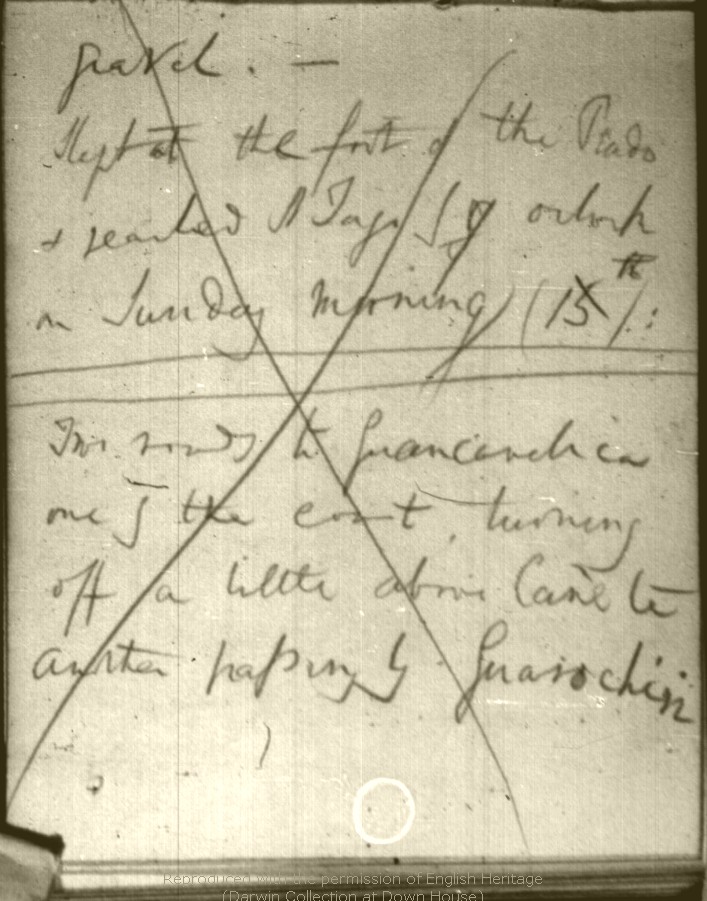 gravel. —
Slept at the foot of the Prado
& reached St Jago by 9 oclock
on Sunday morning (15th).:
Two roads to Guancavelica
one by the coast, turning
off a little above Cañete
another passing by Guarochiri
Reproduced with the permission of English Heritage
(Darwin Collection at Down House)